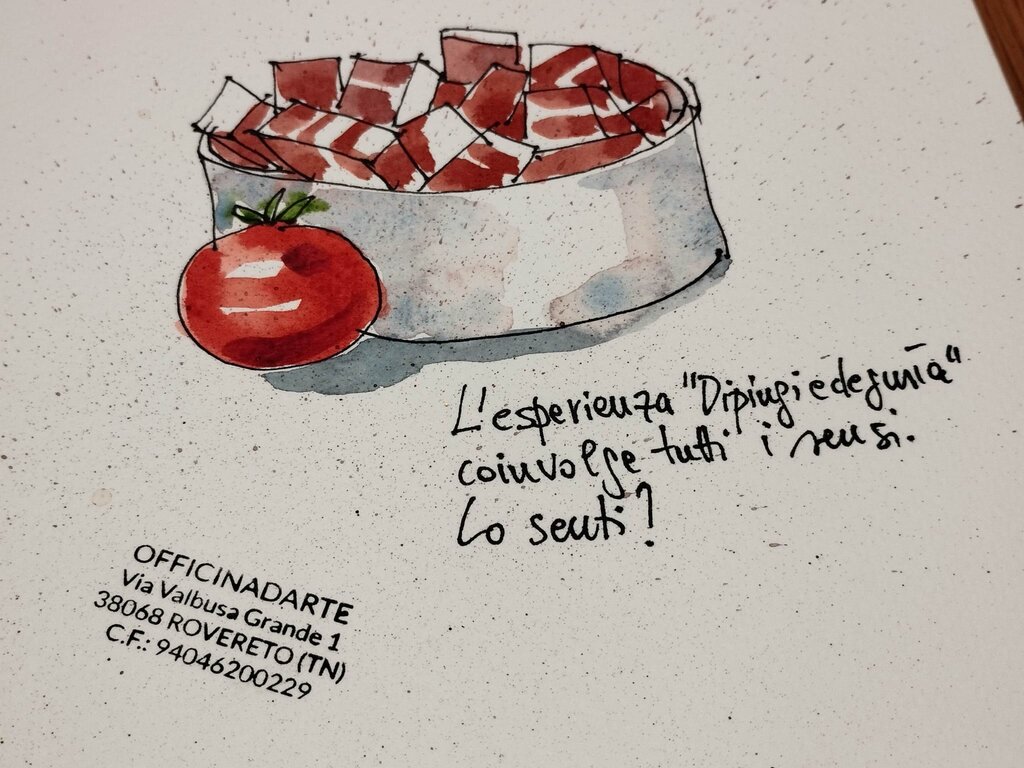 L'esperienza "Dipingi e degusta"
coinvolge tutti i sensi.
Lo senti?
OFFICINADARTE
Via Valbusa Grande 1
38068 ROVERETO (TN)
C.F.: 94046200229